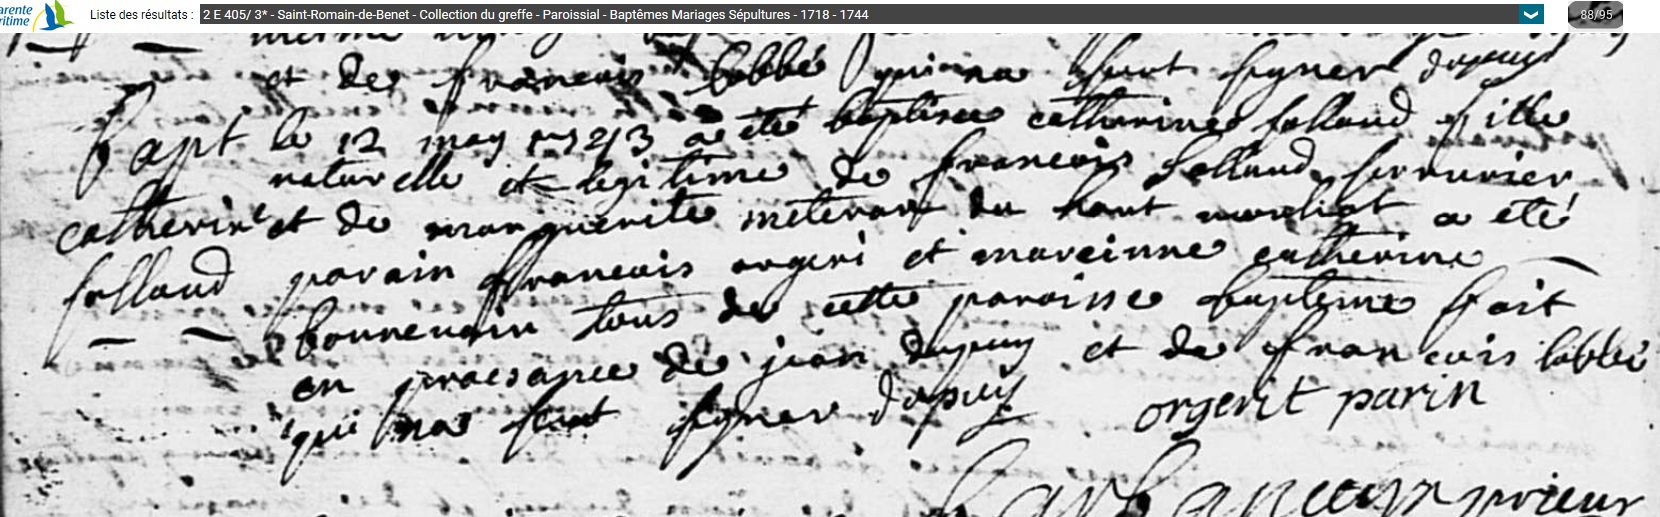 arente
ritime
Liste des résultats :
2 E 405/ 3* - Saint-Romain-de-Benet - Collection du greffe - Paroissial - Baptêmes Mariages Sépultures - 1718 - 1744
88/95
et de francois labbé qui na sut syner dupuy
Bapt le 12 may 1743 a été baptisée catherine follaud fille
naturelle et legitime de francois follaud serrurier
catherine et de marguerite du haut a été
follaud parain francois orgeri et mareinne catherine
bonneuin tous de cette paroisse baptême fait
en praesance de jean dupuy et de francois labbé
qui na sut syner dupuy orgerit parin
prieur